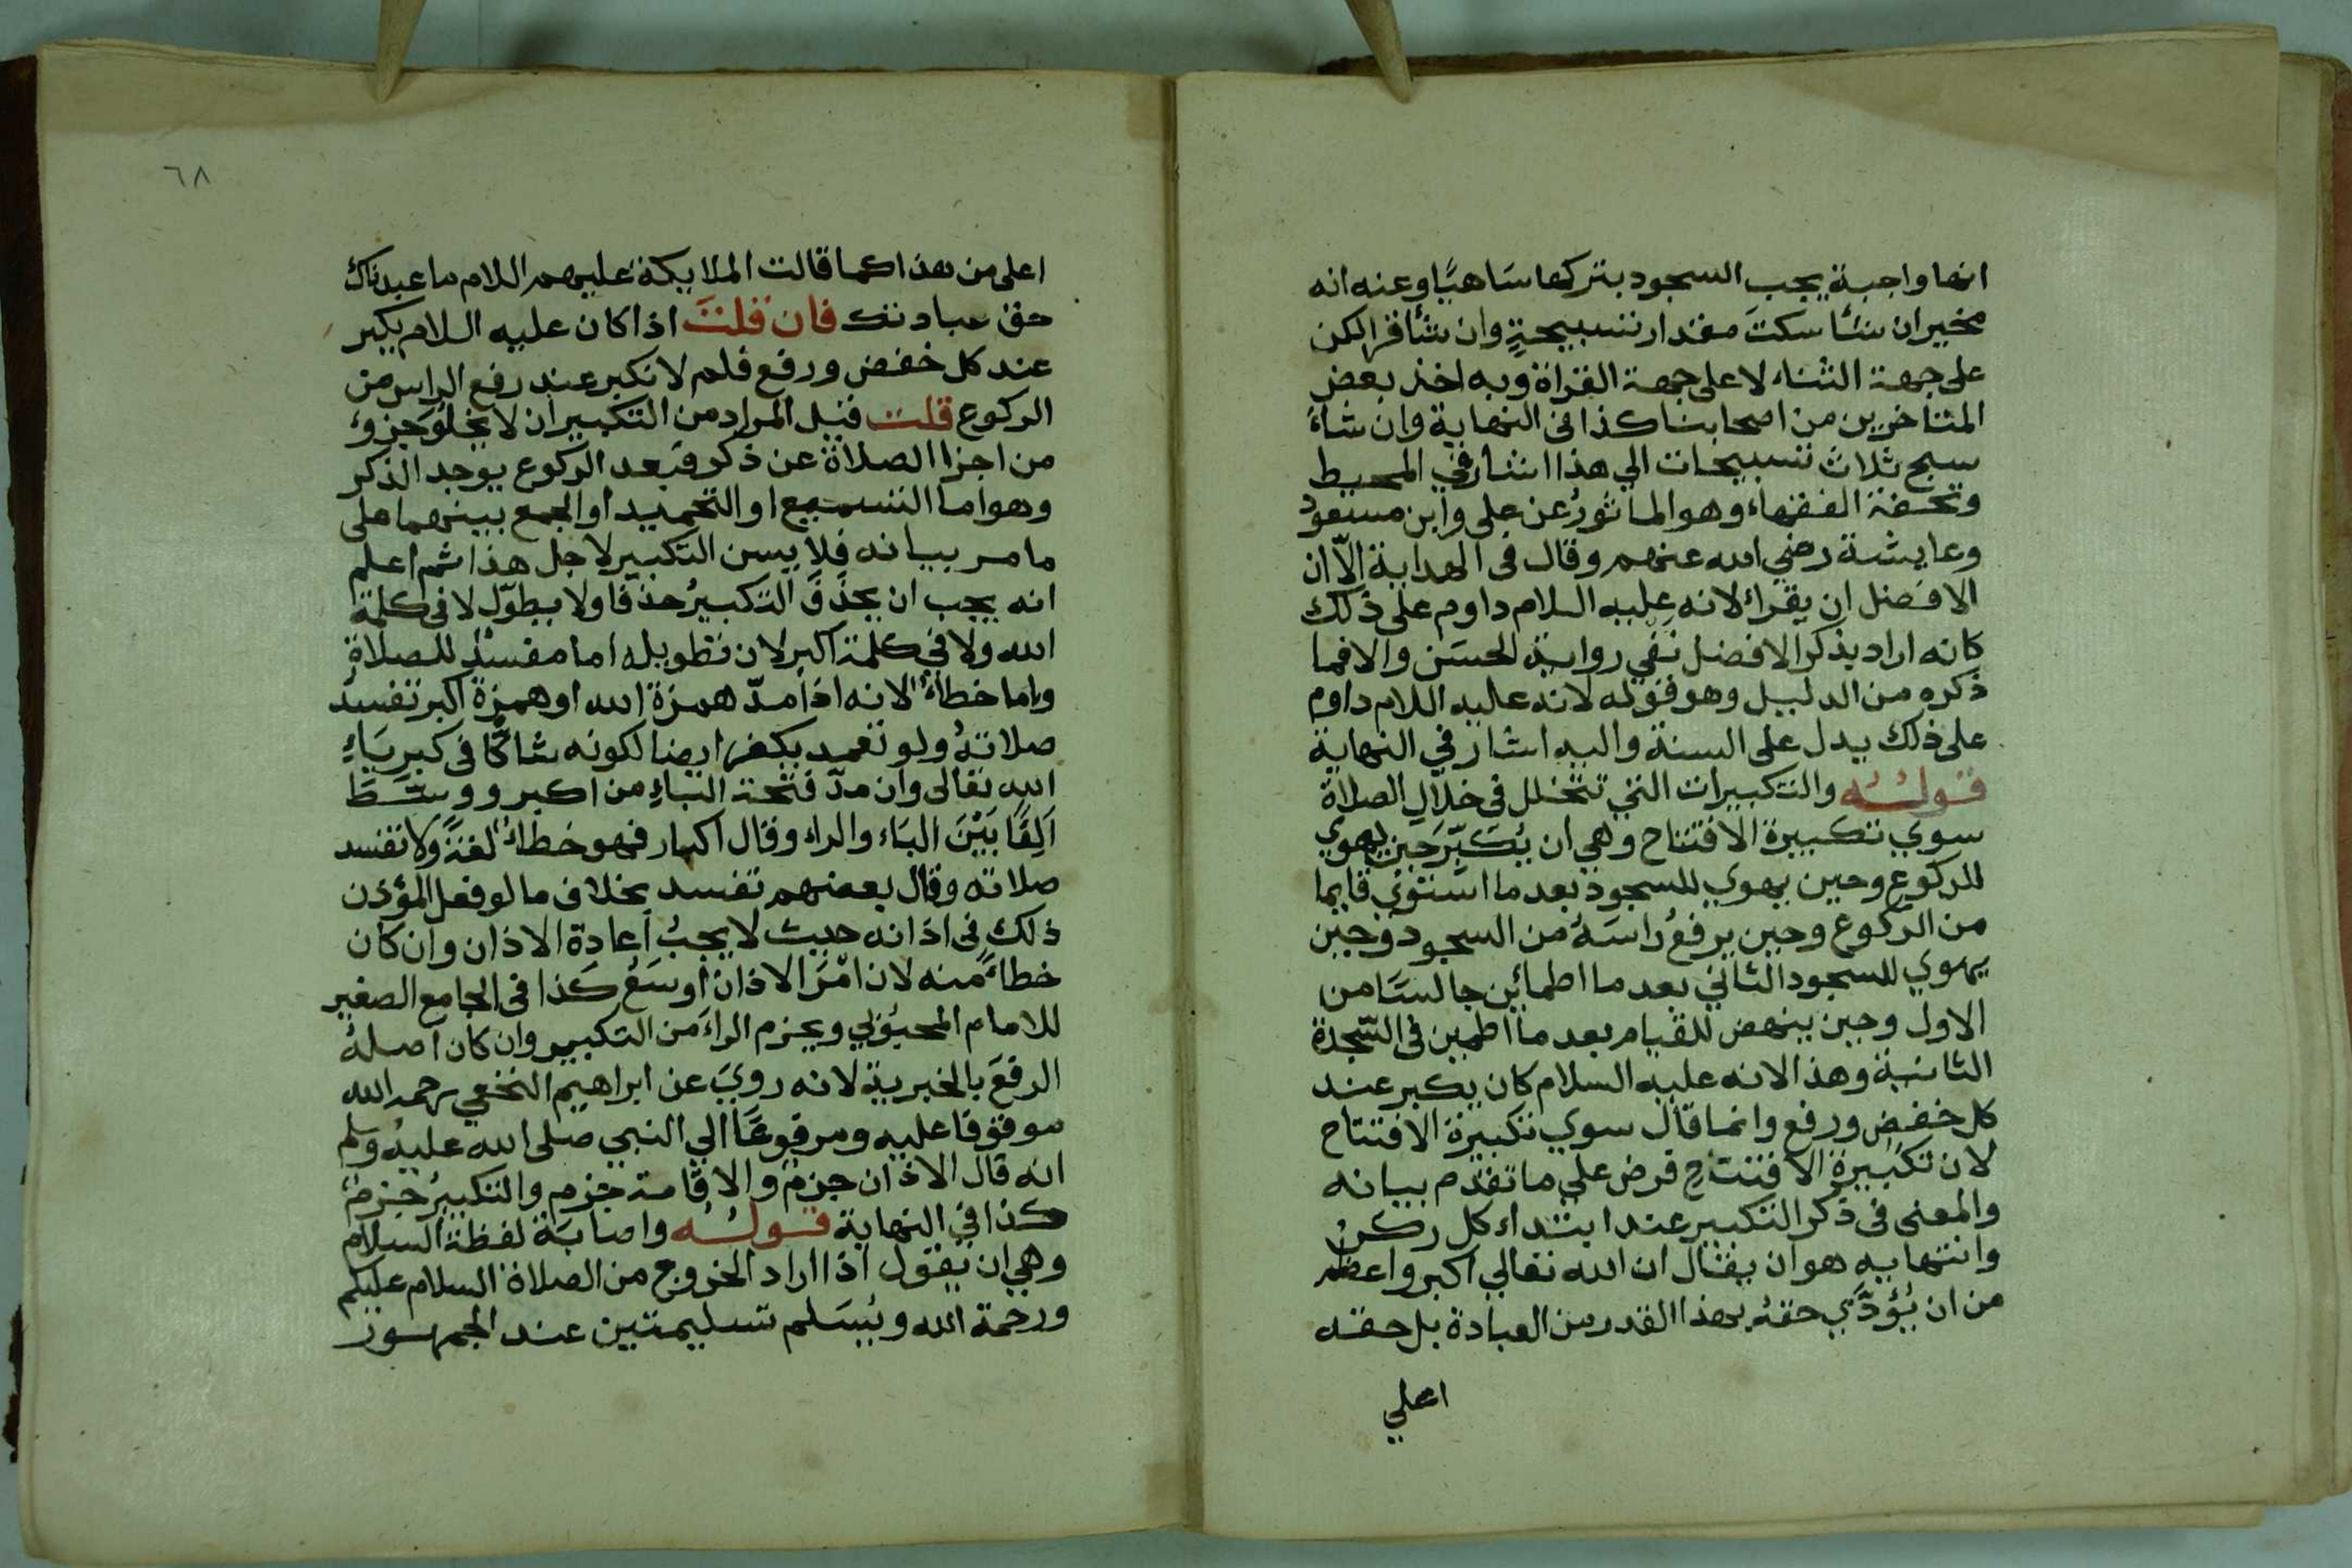 انها واجبة يجب السجود بتركها سَاهيًا وعنه انه
مخير ان شأ سكتَ مقدار تسبيحةٍ وان شأ قرا لكن
على جهة الثناء لا على جهة القراة وبه اخذ بعض
المتاخرين من اصحابنا كذا فى النهاية وان شاءَ
سبح ثلاث تسبيحات الي هذا اشار في المحيط
وتحفة الفقهاء وهو الماثورُ عن على وابن مسعود
وعايشة رضي الله عنهم وقال فى الهداية الّا ان
الافضل ان يقراء لانه عليه السلام داوم على ذلك
كانه اراد بذكر الافضل نفي رواية الحسَن والا فما
ذكره من الدليل وهو قوله لانه عليه اللام داوم
على ذلك يدل على السنة واليه اشار في النهاية
قولُه والتكبيرات التي تتخلل فى خلال الصلاة
سوي تكبيرة الافتتاح وهي ان يُكَبّرَ حين يهوي
للركوع وحين يهوي للسجود بعد ما استوي قايما
من الركوع وحين يرفعُ راسَهُ من السجود وحين
يهوي للسجود الثاني بعد ما اطمائن جالسًا من
الاول وحين ينهض للقيام بعد ما اطمين فى السّجدة
الثانية وهذا لانه عليه السلام كان يكبر عند
كل خفضٍ ورفع وانما قال سوي تكبيرة الافتتاح
لان تكبيرة الافتتاح فرض علي ما تقدم بيانه
والمعنى فى ذكر التكبير عند ابتداء كل ركنٍ
وانتهايه هو ان يقال ان الله تعالي اكبر واعظم
من ان يُؤدَّي حقهُ بهذا القدر من العبادة بل حقه
اعلي
٦٨
اعلى من هذا كما قالت الملايكة عليهم اللام ما عبدناك
حق عبادتك فان قلتَ اذا كان عليه السلام يكبر
عند كل خفض ورفع فلم لا نكبر عند رفع الراس من
الركوع قلت قيل المراد من التكبير ان لا يخلُوَ جزؤ
من اجزا الصلاة عن ذكر فبعد الركوع يوجد الذكر
وهو اما التسميع او التحميد او الجمع بينهما على
ما مر بيانه فلا يسن التكبير لاجل هذا ثم اعلم
انه يجب ان يحذَفَ التكبيرُ حذفا ولا يطوّل لا فى كلمة
الله ولا في كلمة اكبر لان تطويله اما مفسدٌ للصلاة
واما خطاءٌ لانه اذا مدّ همزة الله او همزة اكبر تفسد
صلاتهُ ولو تعمد يكفر ايضا لكونه شاكًّا فى كبريَاءِ
الله تعالى وان مدّ فتحة الباءِ من اكبر ووسَّطَ
اَلِفًا بَيْنَ البَاء والراء وقال اكبار فهو خطاءٌ لغةً ولا تفسد
صلاته وقال بعضهم تفسد بخلاف ما لو فعل المؤذن
ذلك فى اذانه حيث لا يجبُ اعادة الاذان وان كان
خطاءً منه لان امْرَ الاذان اوسَعُ كَذا فى الجامع الصغير
للامام المحبُوبي ويجزم الراءَ من التكبير وان كان اصلهُ
الرفعَ بالخبرية لانه رويَ عن ابراهيم النخعي رحمه الله
موقوفا عليه ومرفوعًا الي النبي صلى الله عليه وسلم
انه قال الاذان جزمٌ والاقامة جزم والتكبيرُ جزمٌ
كذا في النهاية قولُه واصابَة لفظة السلام
وهي ان يقول اذا اراد الخروج من الصلاة السلام عليكم
ورحمة الله ويُسَلم تسليمتين عند الجمهور